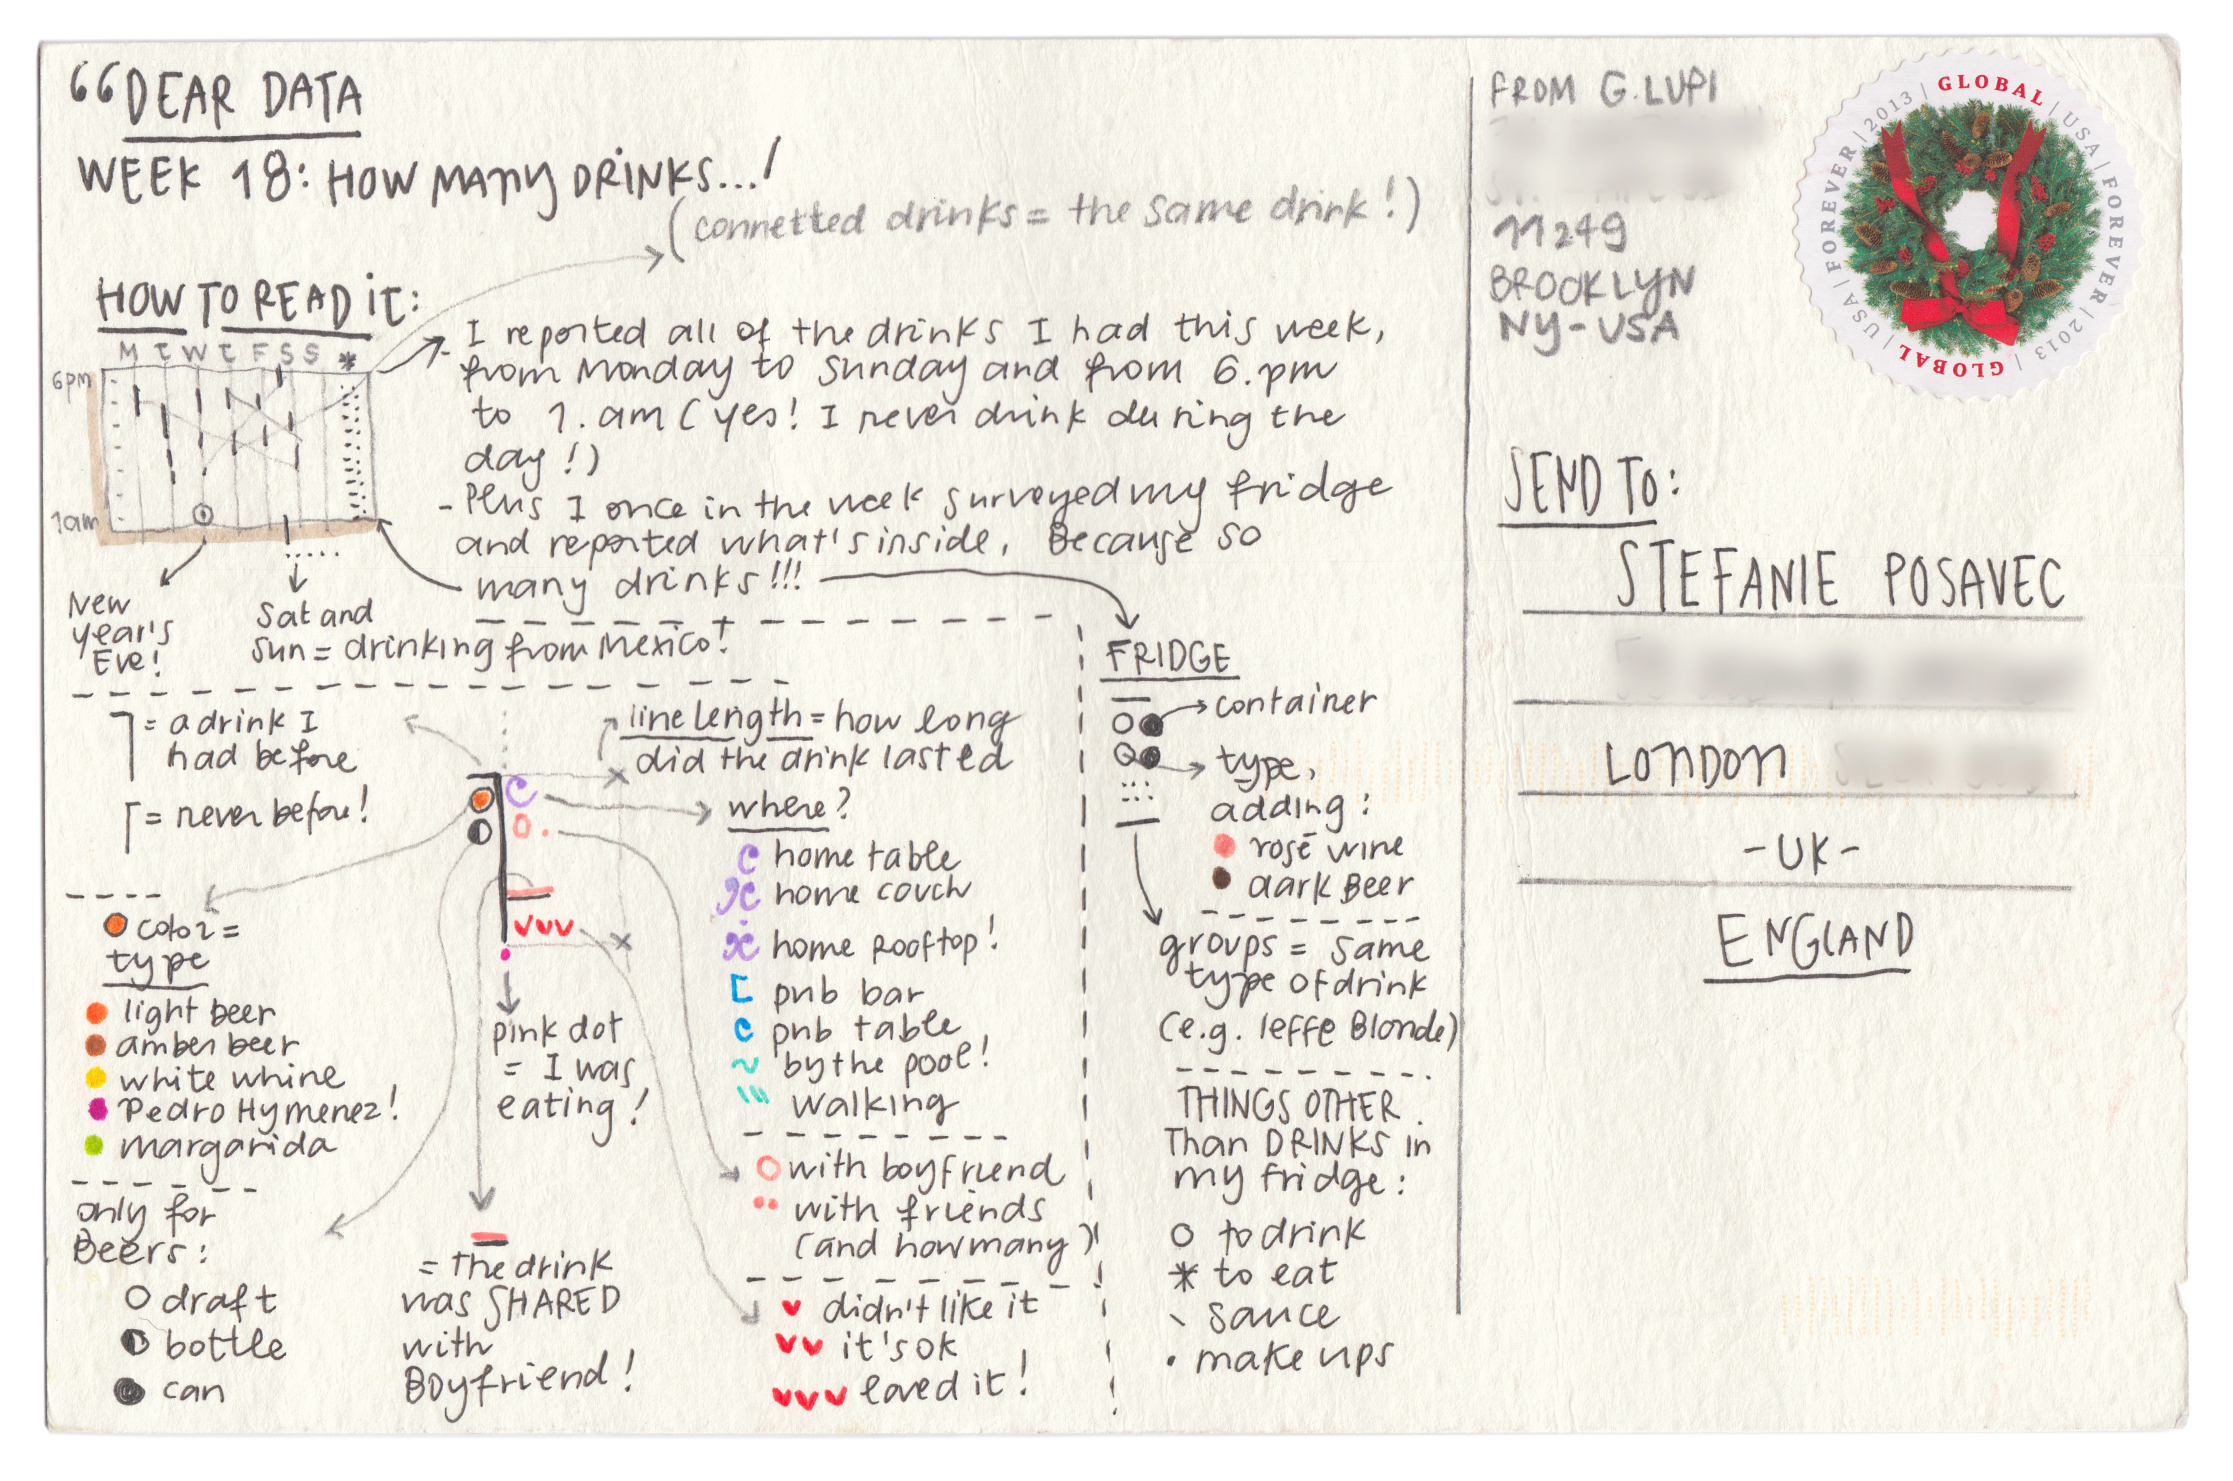 “DEAR DATA
WEEK 18: HOW MANY DRINKS...!
(connetted drinks = the same drink!)
HOW TO READ IT:
M T W T F S S *
6pm
1am
- I reported all of the drinks I had this week,
from Monday to Sunday and from 6.pm
to 1.am (yes! I never drink during the
day!)
- Plus I once in the week surveyed my fridge
and reported what's inside, Because so
many drinks!!!
New
year's
Eve!
Sat and
Sun = drinking from Mexico!
= a drink I
had before
= never before!
line length = how long
did the drink lasted
where?
home table
home couch
home rooftop!
pub bar
pub table
by the pool!
walking
with boyfriend
with friends
(and how many)
didn't like it
it's ok
loved it!
color =
type
light beer
amber beer
white whine
Pedro Hymenez!
margarida
only for
Beers:
draft
bottle
can
pink dot
= I was
eating!
= the drink
was SHARED
with
Boyfriend!
FRIDGE
container
type,
adding:
rosē wine
dark Beer
groups = same
type of drink
(e.g. leffe Blonde)
THINGS OTHER
Than DRINKS in
my fridge:
to drink
* to eat
sauce
make ups
FROM G.LUPI
11249
BROOKLYN
NY-USA
GLOBAL | USA | FOREVER | 2013 | GLOBAL | USA | FOREVER | 2013 |
SEND TO:
STEFANIE POSAVEC
LONDON
-UK-
ENGLAND